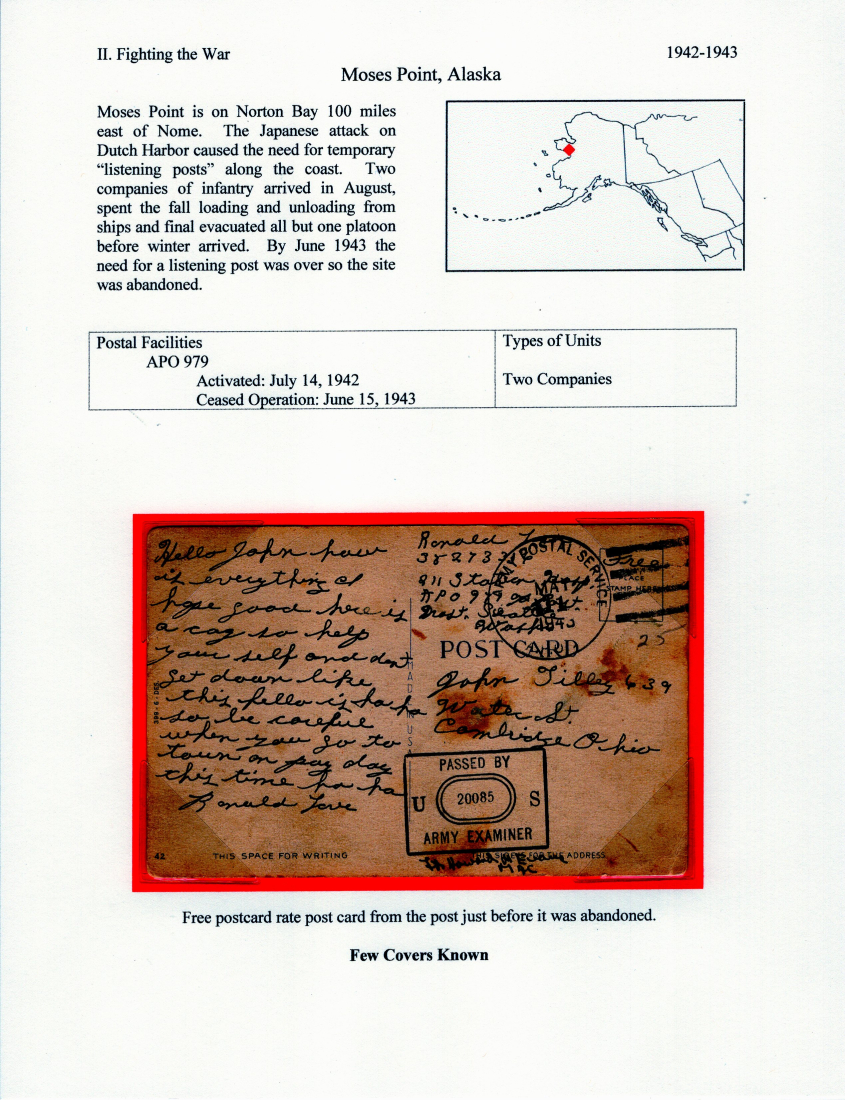 II. Fighting the War
1942-1943
Moses Point, Alaska
Moses Point is on Norton Bay 100 miles
east of Nome. The Japanese attack on
Dutch Harbor caused the need for temporary
“listening posts” along the coast. Two
companies of infantry arrived in August,
spent the fall loading and unloading from
ships and final evacuated all but one platoon
before winter arrived. By June 1943 the
need for a listening post was over so the site
was abandoned.
Postal Facilities
APO 979
Activated: July 14, 1942
Ceased Operation: June 15, 1943
Types of Units
Two Companies
Hello John how
is everything I
hope good here is
a cag so help
your self and don't
set down like
this fello is ha ha
so be careful
when you go to
town on pay day
this time ha ha
Ronald Love
42
THIS SPACE FOR WRITING
Ronald
911
APO 979
Wash
POSTAL SERVICE
MAY
1943
Free
PLACE
STAMP HERE
25
POST CARD
John Tilley 639
Water St.
Cambridge Ohio
PASSED BY
U 20085 S
ARMY EXAMINER
THIS SIDE FOR THE ADDRESS
Free postcard rate post card from the post just before it was abandoned.
Few Covers Known